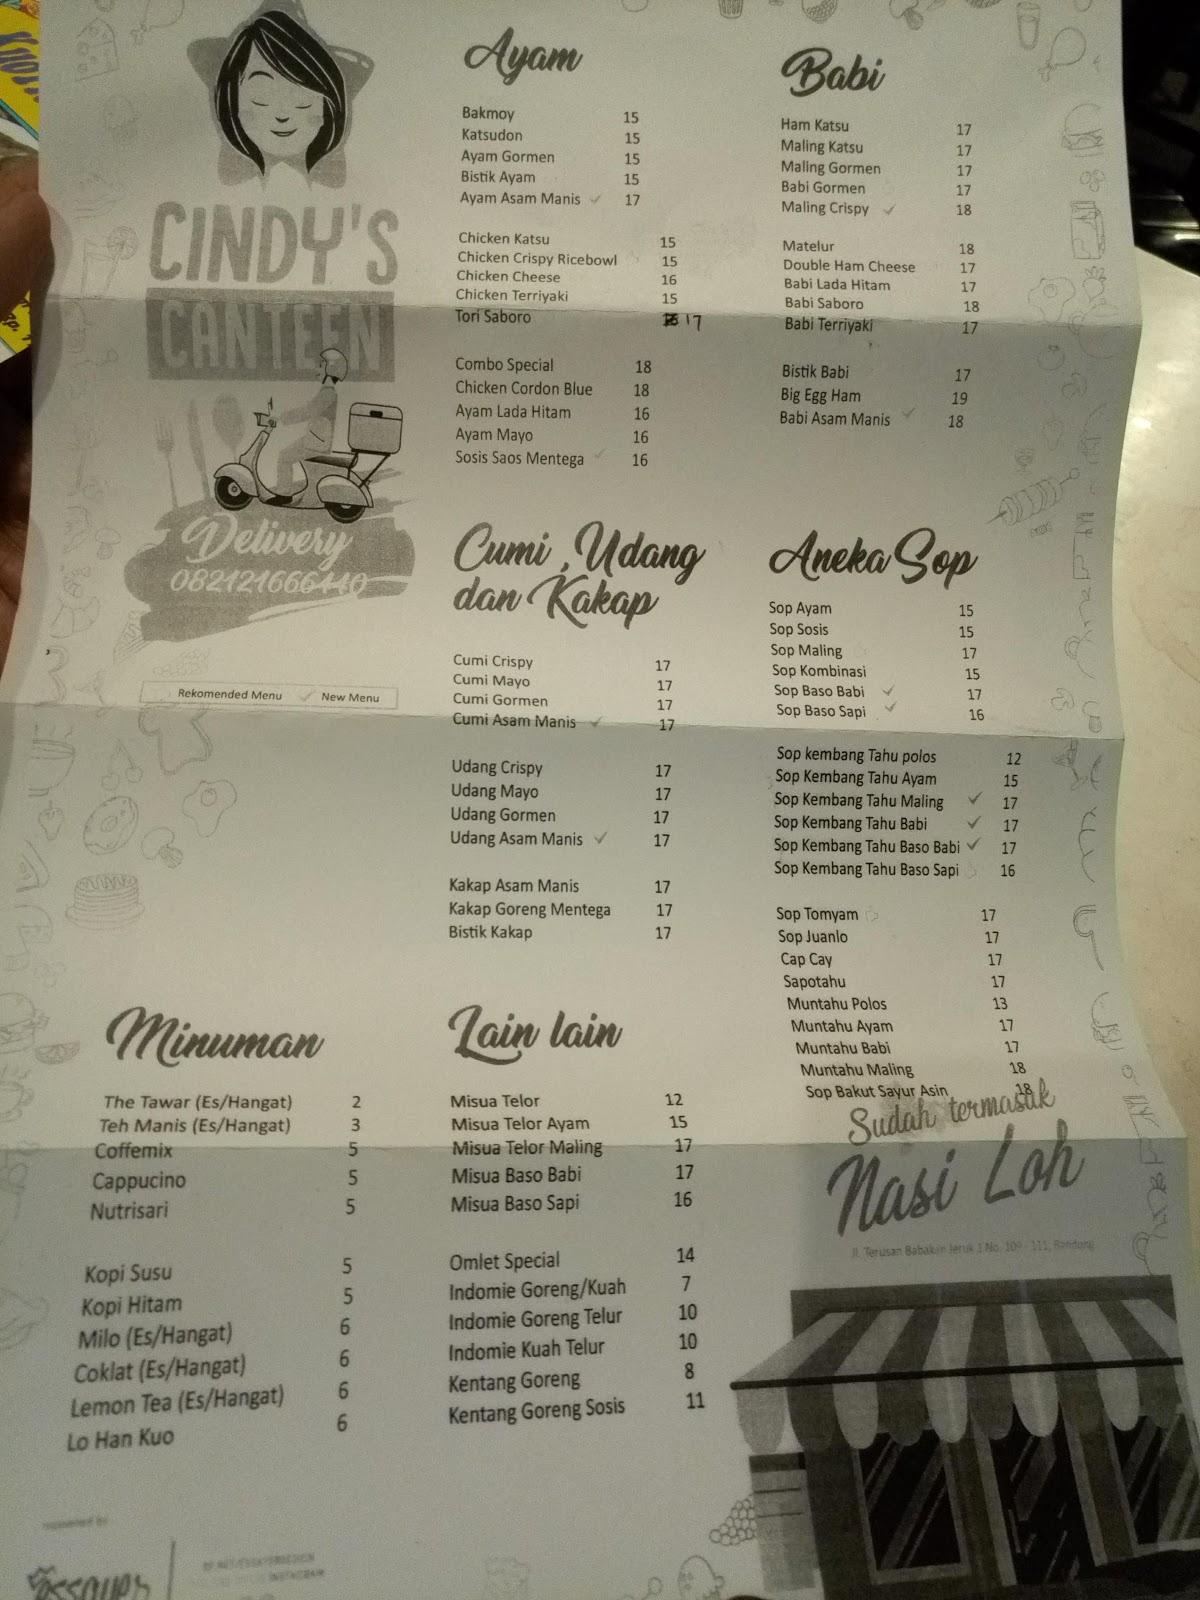 CINDY'S
CANTEEN
Delivery
082121666440
Rekomended Menu New Menu
Ayam
Bakmoy 15
Katsudon 15
Ayam Gormen 15
Bistik Ayam 15
Ayam Asam Manis ✓ 17
Chicken Katsu 15
Chicken Crispy Ricebowl 15
Chicken Cheese 16
Chicken Terriyaki 15
Tori Saboro 17
Combo Special 18
Chicken Cordon Blue 18
Ayam Lada Hitam 16
Ayam Mayo 16
Sosis Saos Mentega ✓ 16
Babi
Ham Katsu 17
Maling Katsu 17
Maling Gormen 17
Babi Gormen 17
Maling Crispy ✓ 18
Matelur 18
Double Ham Cheese 17
Babi Lada Hitam 17
Babi Saboro 18
Babi Terriyaki 17
Bistik Babi 17
Big Egg Ham 19
Babi Asam Manis ✓ 18
Cumi , Udang
dan Kakap
Cumi Crispy 17
Cumi Mayo 17
Cumi Gormen 17
Cumi Asam Manis ✓ 17
Udang Crispy 17
Udang Mayo 17
Udang Gormen 17
Udang Asam Manis ✓ 17
Kakap Asam Manis 17
Kakap Goreng Mentega 17
Bistik Kakap 17
Aneka Sop
Sop Ayam 15
Sop Sosis 15
Sop Maling 17
Sop Kombinasi 15
Sop Baso Babi ✓ 17
Sop Baso Sapi ✓ 16
Sop kembang Tahu polos 12
Sop Kembang Tahu Ayam 15
Sop Kembang Tahu Maling ✓ 17
Sop Kembang Tahu Babi ✓ 17
Sop Kembang Tahu Baso Babi ✓ 17
Sop Kembang Tahu Baso Sapi 16
Sop Tomyam 17
Sop Juanlo 17
Cap Cay 17
Sapotahu 17
Muntahu Polos 13
Muntahu Ayam 17
Muntahu Babi 17
Muntahu Maling 18
Sop Bakut Sayur Asin 18
Minuman
The Tawar (Es/Hangat) 2
Teh Manis (Es/Hangat) 3
Coffemix 5
Cappucino 5
Nutrisari 5
Kopi Susu 5
Kopi Hitam 5
Milo (Es/Hangat) 6
Coklat (Es/Hangat) 6
Lemon Tea (Es/Hangat) 6
Lo Han Kuo 6
Lain lain
Misua Telor 12
Misua Telor Ayam 15
Misua Telor Maling 17
Misua Baso Babi 17
Misua Baso Sapi 16
Omlet Special 14
Indomie Goreng/Kuah 7
Indomie Goreng Telur 10
Indomie Kuah Telur 10
Kentang Goreng 8
Kentang Goreng Sosis 11
Sudah termasuk
Nasi Loh
Jl. Terusan Babakan Jeruk I No. 109 - 111, Bandung
supported by
INSTAGRAM